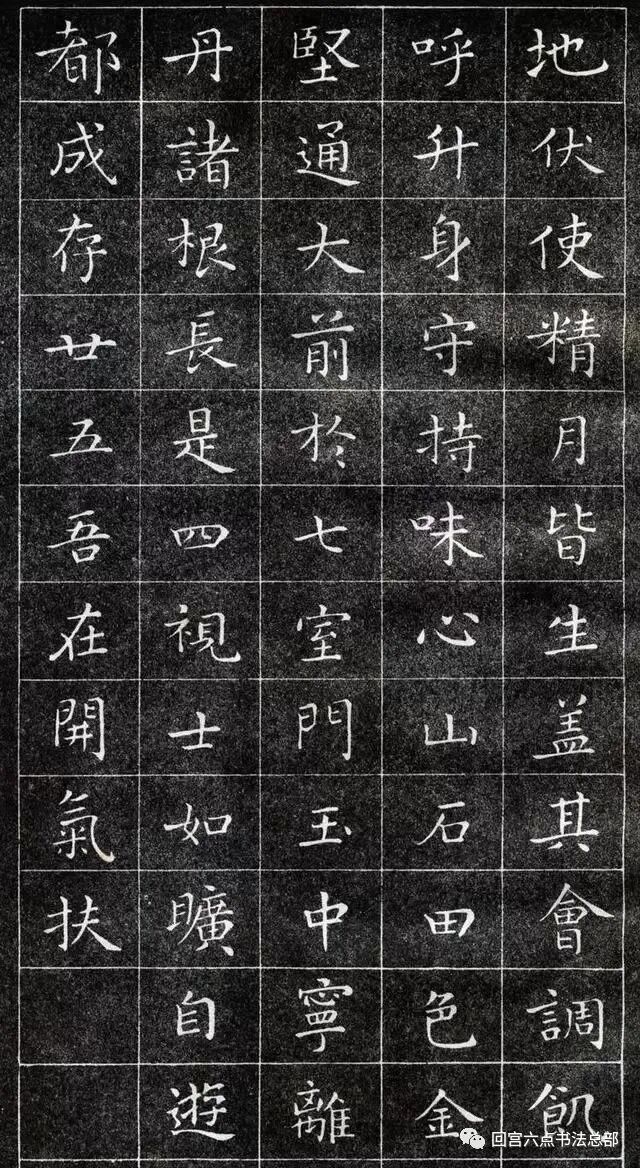 地伏使精月皆生盖其會調飢
呼升身守持味心山石田色金
堅通大前於七室門玉中寧離
丹諸根長是四視士如曠自遊
都成存廿五吾在開氣扶
回宫六点书法总部